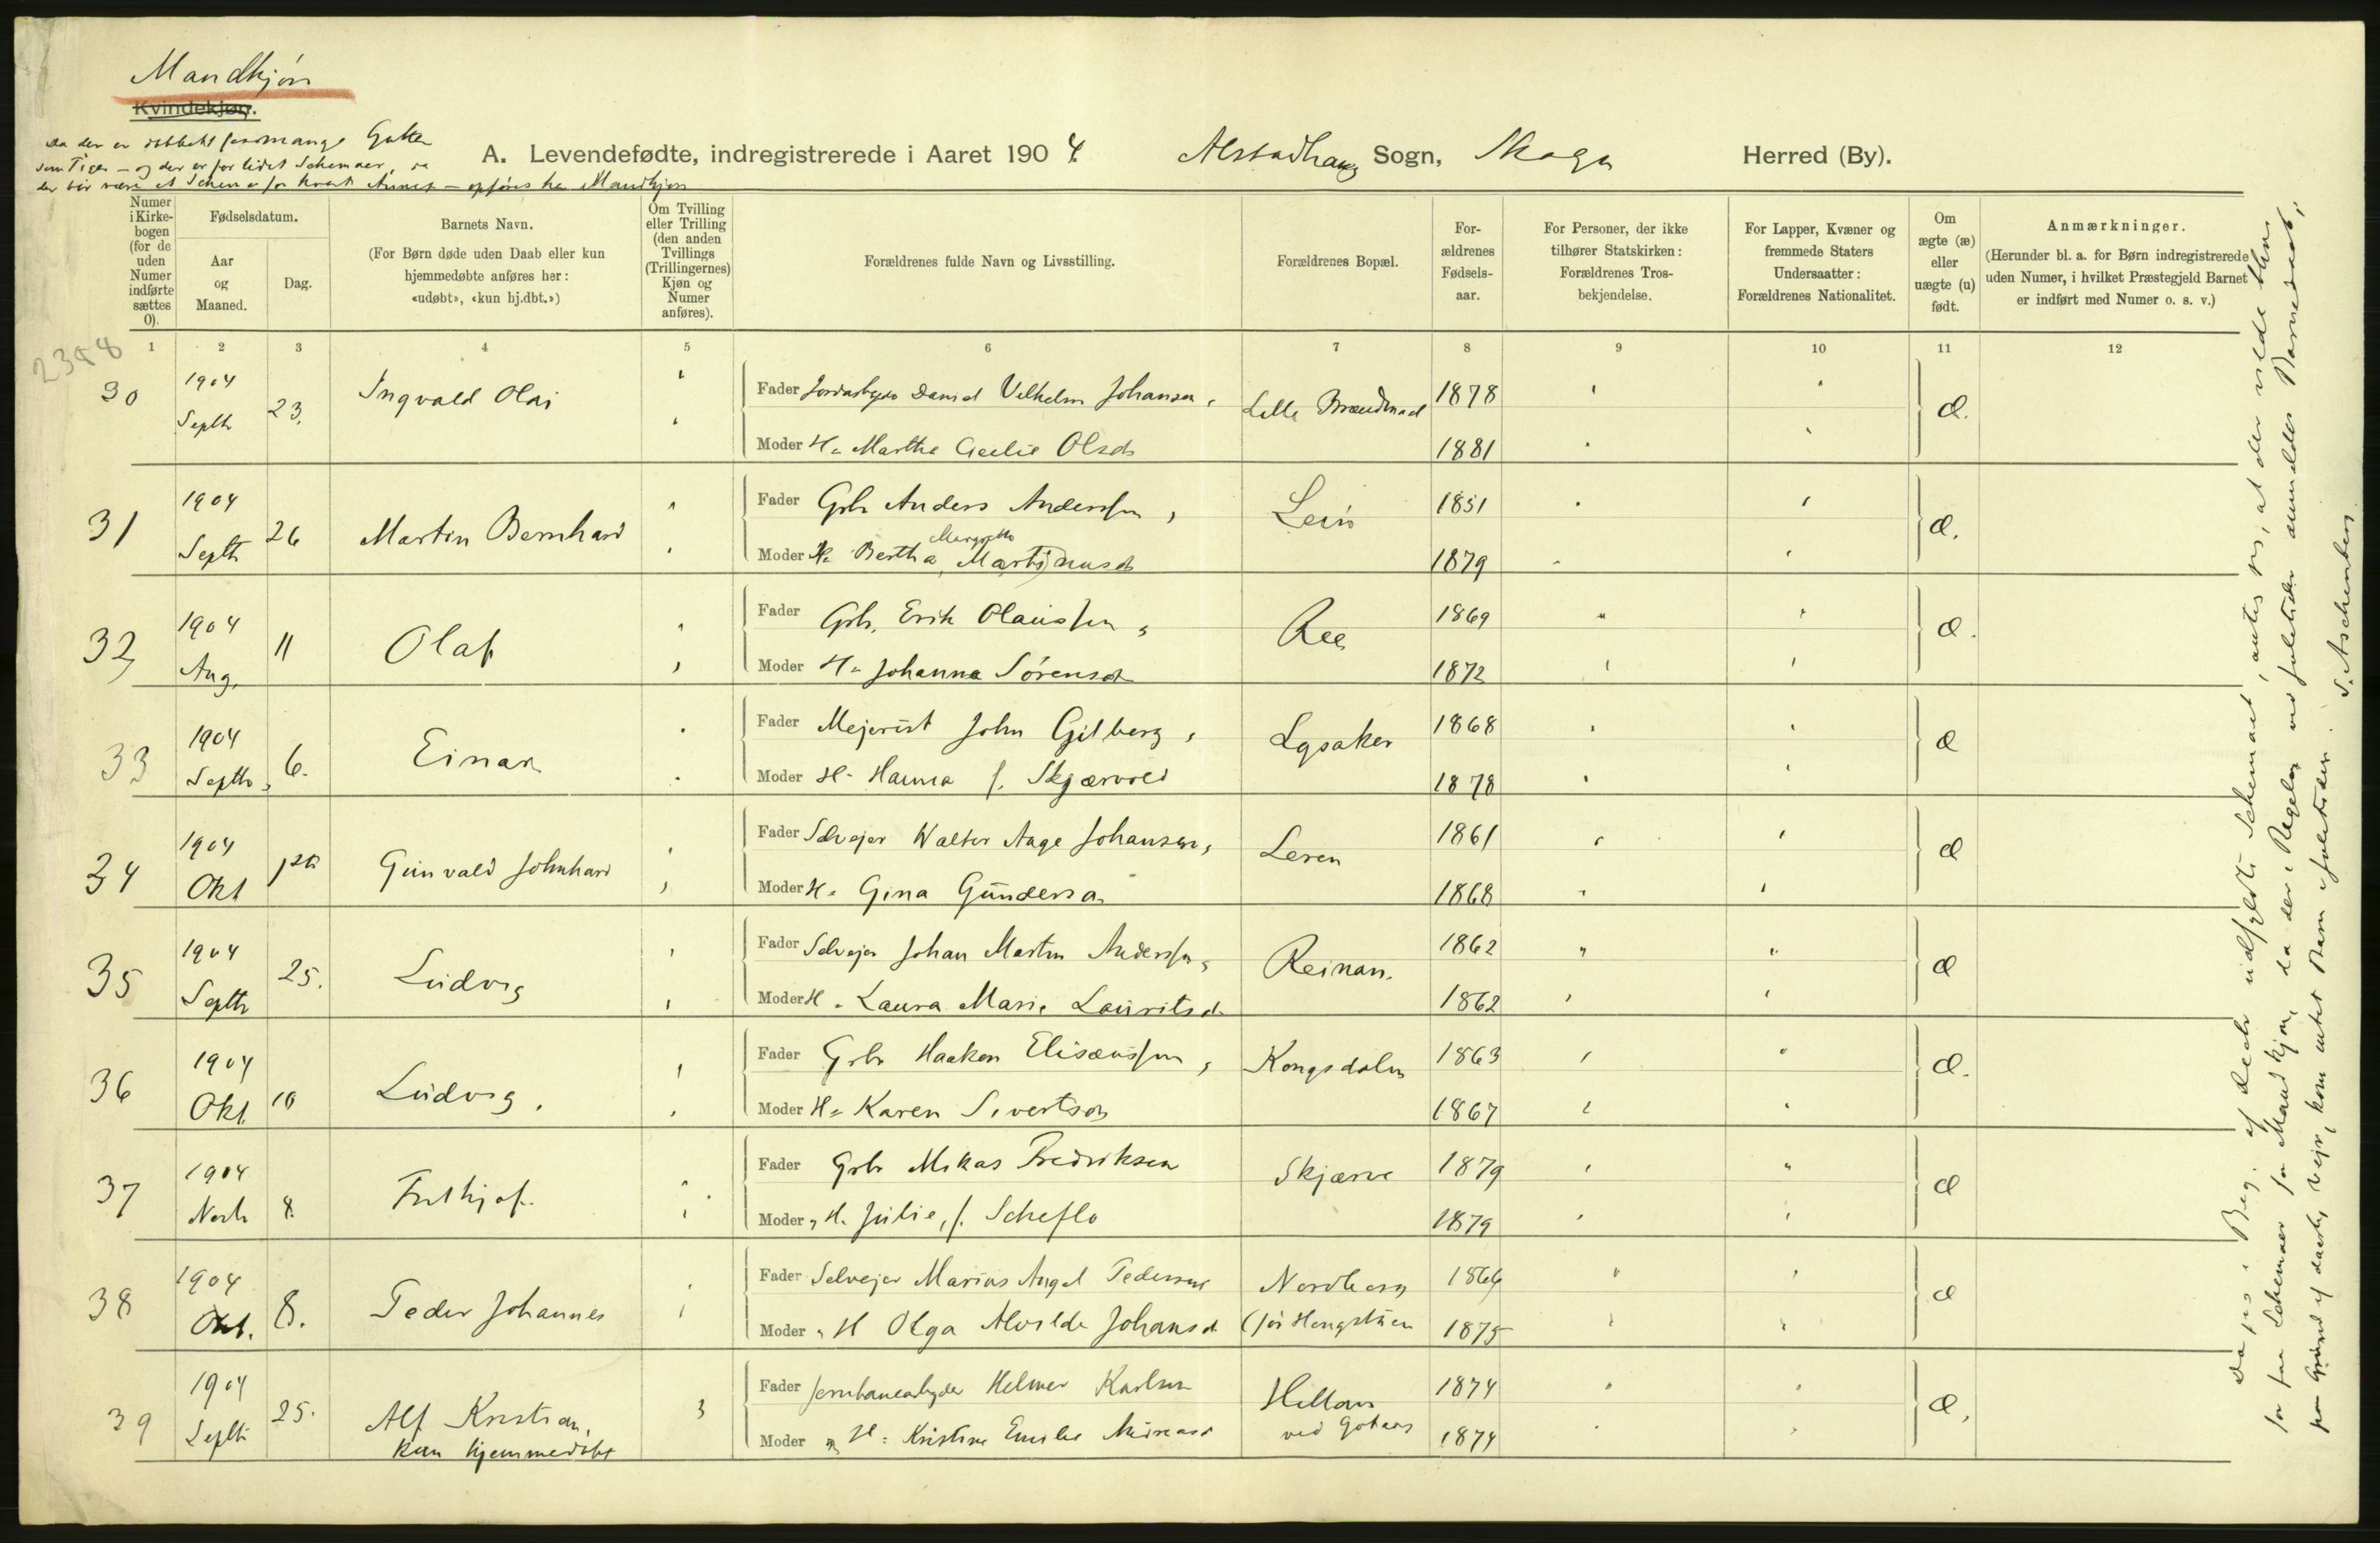 Mandkjøn
Kvindekjøn.
Da der er dobbelt saa mange Gutter
som Piger — og der er for lidet Schemaer, da
der bør være et Schema for hvert — opføres her Mandkjøn
A. Levendefødte, indregistrerede i Aaret 1904. Alstadhaug Sogn, Skogn Herred (By).
Numer i Kirkebogen (for de uden Numer indførte sættes 0).
Fødselsdatum.
Aar og Maaned.
Dag.
Barnets Navn.
(For Børn døde uden Daab eller kun hjemmedøbte anføres her: «udøbt», «kun hj.dbt.»)
Om Tvilling eller Trilling (den anden Tvillings (Trillingernes) Kjøn og Numer anføres).
Forældrenes fulde Navn og Livsstilling.
Forældrenes Bopæl.
Forældrenes Fødselsaar.
For Personer, der ikke tilhører Statskirken: Forældrenes Trosbekjendelse.
For Lapper, Kvæner og fremmede Staters Undersaatter: Forældrenes Nationalitet.
Om ægte (æ) eller uægte (u) født.
Anmærkninger.
(Herunder bl. a. for Børn indregistrerede uden Numer, i hvilket Præstegjeld Barnet er indført med Numer o. s. v.)
1 2 3 4 5 6 7 8 9 10 11 12
30 1904 Septb 23. Ingvald Olai Fader Daniel Vilhelm Johansen, Lille 1878 æ.
Moder H. Martha Cecilie Olsd 1881
31 1904 Septb 26 Martin Bernhard Fader Grbr Anders Anderssen, Lein 1851 æ.
Moder H. Bertha Margrethe Martinusd 1879
32 1904 Aug. 11 Olaf Fader Grb. Erik Olaussen, Ree 1869 æ.
Moder H. Johanna Sørensd 1872
33 1904 Septb. 6. Einar Fader Mejerist John Gilberg, Lysaker 1868 æ
Moder H. Hanna f. Skjærvold 1878
34 1904 Okt 1ste Gunvald Johnhard Fader Selvejer Walter Aage Johansen, Leren 1861 æ
Moder H. Gina 1868
35 1904 Septb 25. Ludvig Fader Selvejer Johan Martin Anderssen, Reinan. 1862 æ
Moder H. Laura Marie Lauritsd 1862
36 1904 Okt. 10 Ludvig. Fader Grbr Haaken Elisæussen, Kongsdalen 1863 æ.
Moder H. Karen Sivertsd 1867
37 1904 Novb 8. Frithjof. Fader Grbr Mikas Fredriksen Skjærve 1879 æ
Moder H. Julie, f. Scheflo 1879
38 1904 Okt. 8. Peder Johannes Fader Selvejer Marius Angel Pedersen Nordberg 1866 æ
Moder H Olga Alvilde Johansd 1875
39 1904 Septb 25. Alf Kristian, Fader Jernbanearbejder Helmer Karlsen 1874 æ.
kun hjemmedøbt Moder H. Kristine Emilie ved Gotaas 1874
2348
Da jeg i Beg. af dette udfyldte Schemaet, antog jeg, at der vilde blive
for faa Schemaer for Mandkjøn, da der i Regelen ved juletider anmeldes Barnedaab,
paa Grund af daarlig vejr, kom intet Barn i juletiden. S. Aschenberg